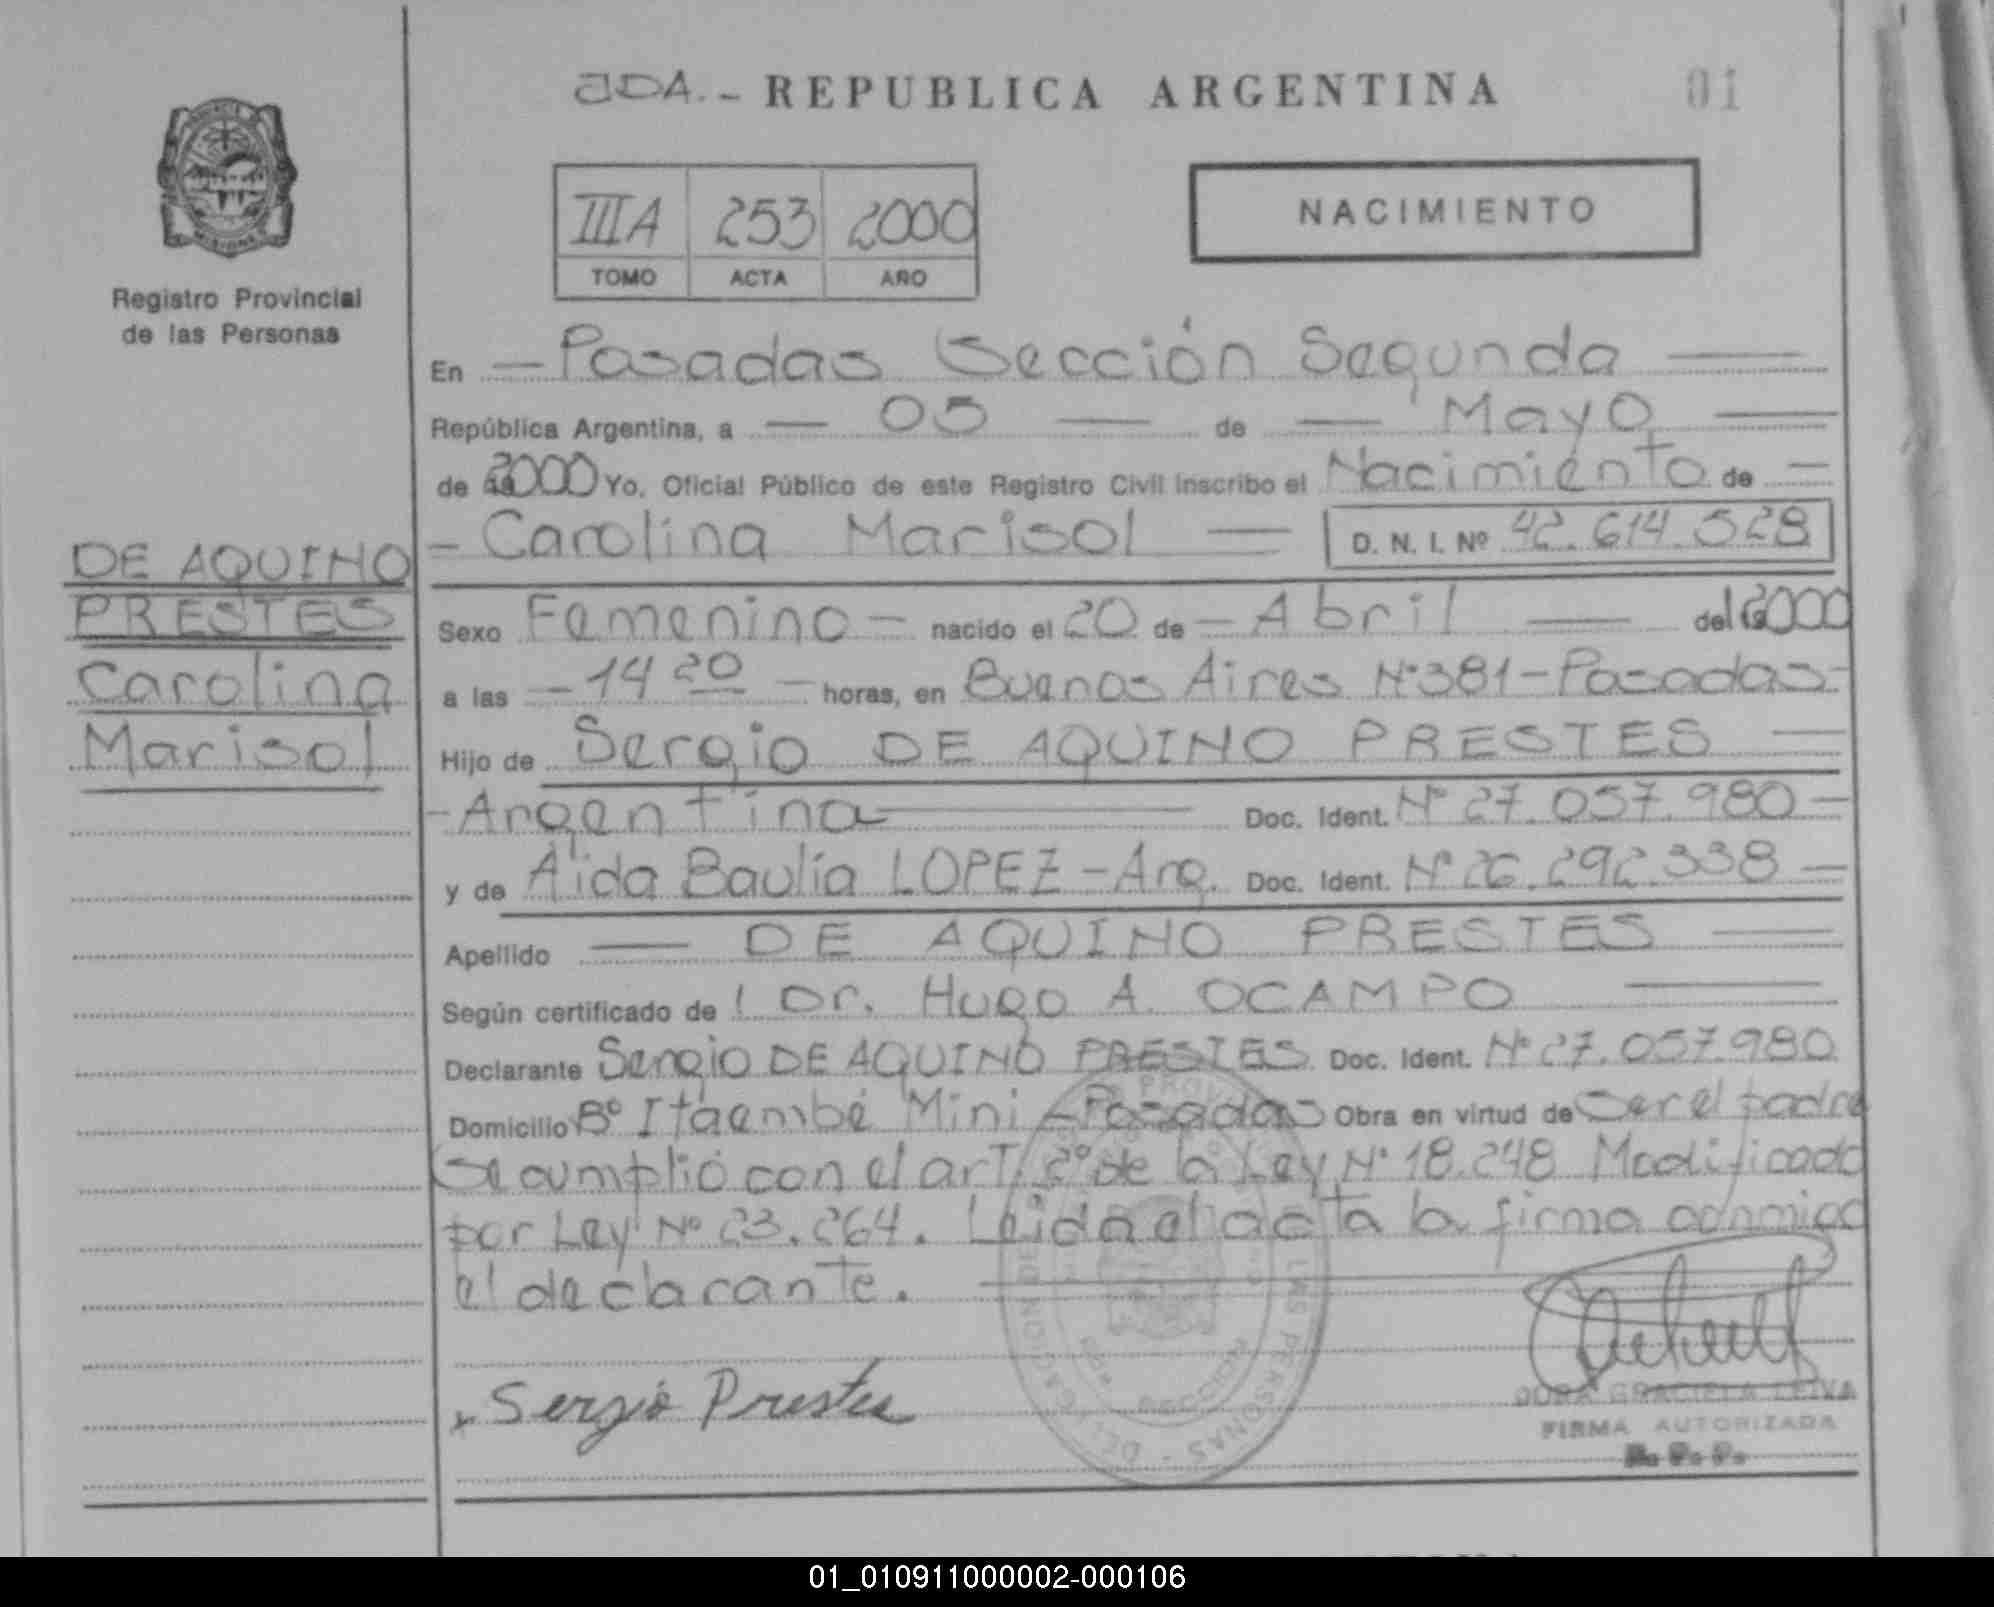 JDA.- REPUBLICA ARGENTINA 01
IIIA 253 2000
TOMO ACTA AÑO
NACIMIENTO
Registro Provincial
de las Personas
DE AQUINO
PRESTES
Carolina
Marisol
En — Posadas Sección Segunda —
República Argentina, a — 05 — de — Mayo —
de 2000 Yo, Oficial Público de este Registro Civil inscribo el Nacimiento de —
- Carolina Marisol — D. N. I. Nº 42.614.528
Sexo Femenino - nacido el 20 de - Abril — del 2000
a las - 14 20 - horas, en Buenos Aires Nº 381 - Posadas-
Hijo de Sergio DE AQUINO PRESTES —
- Argentina — Doc. Ident. Nº 27.057.980 -
y de Aída Baulía LOPEZ - Arg. Doc. Ident. Nº 26.292.338 -
Apellido — DE AQUINO PRESTES —
Según certificado de Dr. Hugo A. OCAMPO —
Declarante Sergio DE AQUINO PRESTES Doc. Ident. Nº 27.057.980
Domicilio Bº Itaembé Miní - Posadas Obra en virtud de Ser el padre
Se cumplió con el art. 2º de la Ley Nº 18.248 Modificado
por Ley Nº 23.264. Leída el acta la firma conmigo
el declarante.
Sergio Prestes
DORA GRACIELA LEIVA
FIRMA AUTORIZADA
R. P. P.
01_010911000002-000106